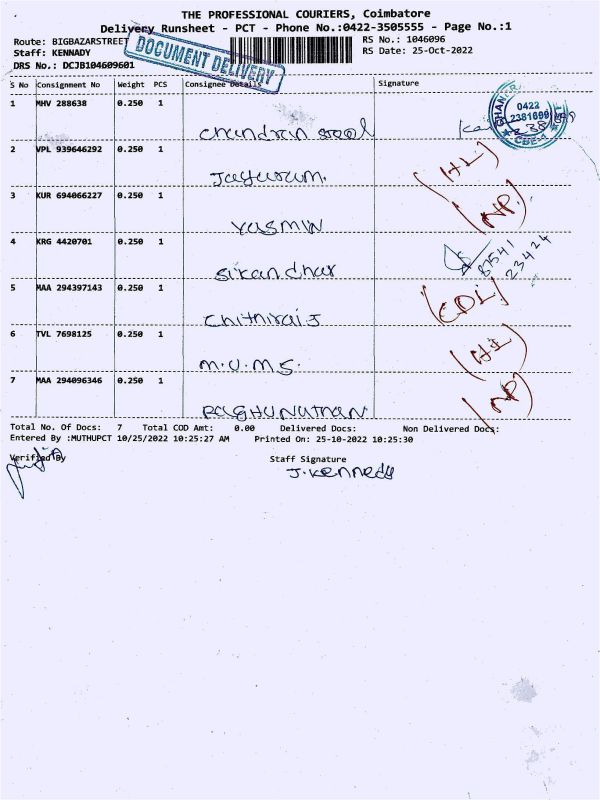 THE PROFESSIONAL COURIERS, Coimbatore
Delivery Runsheet - PCT - Phone No.:0422-3505555 - Page No.:1
Route: BIGBAZARSTREET
RS No.: 1046096
Staff: KENNADY
RS Date: 25-Oct-2022
DRS No.: DCJB104609601
DOCUMENT DELIVERY
S No Consignment No Weight PCS Consignee Details Signature
1 MHV 288638 0.250 1 Chandran steel
0422
2381696
CBE-1
2 VPL 939646292 0.250 1 Jayaram. (H.I.)
3 KUR 694066227 0.250 1 Yasmin (NP.)
4 KRG 4420701 0.250 1 Sikandhar 87541
23424
5 MAA 294397143 0.250 1 Chithirai J (CDL)
6 TVL 7698125 0.250 1 M.U.M.S. (H.I)
7 MAA 294096346 0.250 1 RAGHUNATHAN (NP)
Total No. Of Docs: 7 Total COD Amt: 0.00 Delivered Docs: Non Delivered Docs:
Entered By :MUTHUPCT 10/25/2022 10:25:27 AM Printed On: 25-10-2022 10:25:30
Verified By Staff Signature
J. Kennedy